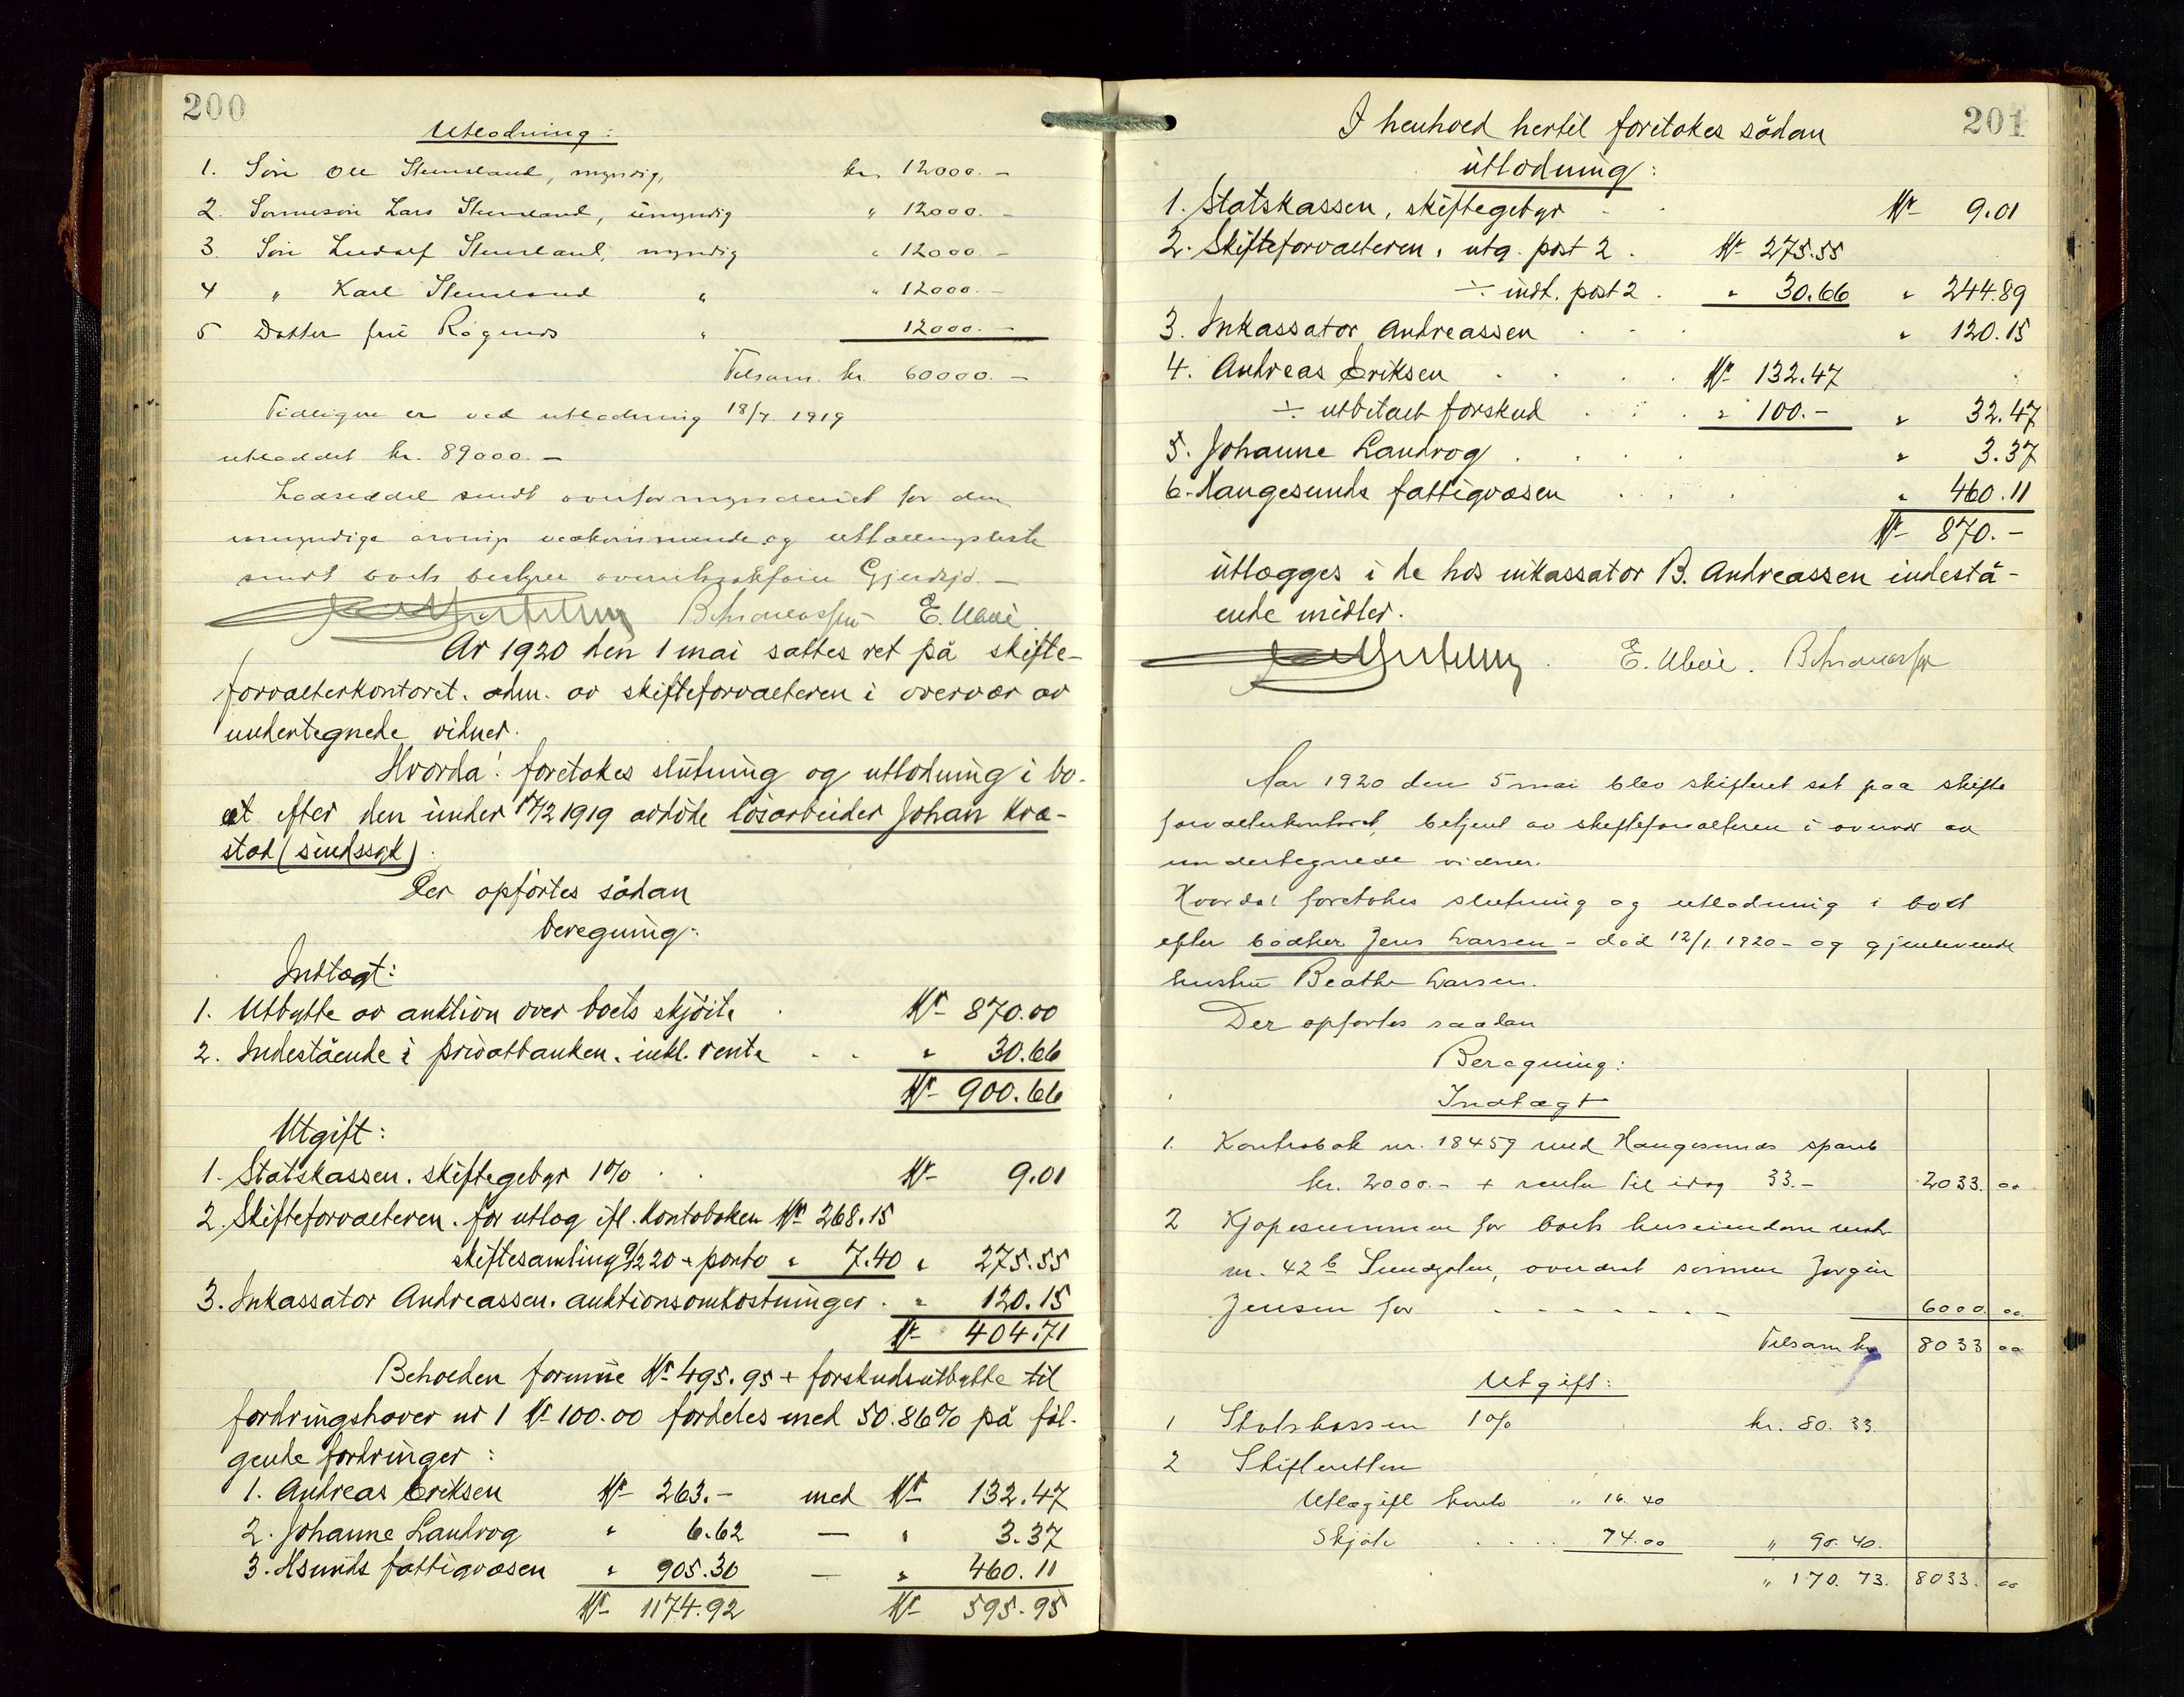 200
Utlodning:
1. Søn Ole Stensland, myndig, kr. 12000.–
2. Sønnesøn Lars Stensland, umyndig " 12000.–
3. Søn Ludolf Stensland, myndig " 12000.–
4 " Karl Stensland " " 12000.–
5 Datter fru Røgenes " 12000.–
Tilsam. kr. 60000.–
Tidligere er ved utlodning 18/7. 1919
utloddet kr. 89000.–
Lodseddel sendt overformynderiet for den
umyndige arving vedkommende og utlodningsliste
sendt boets bestyrer overrettssakfører Gjerdsjø.–
B Andreassen E. Ubøe
År 1920 den 1 mai sattes ret på skifte-
forvalterkontoret. adm. av skifteforvalteren i overvær av
undertegnede vidner.
Hvorda! foretokes slutning og utlodning i bo-
et efter den under 17/2 1919 avdøde løsarbeider Johan Kra-
stad (sindssyk).
Der opførtes sådan
beregning:
Indtægt:
1. Utbytte av auktion over boets skjöite . Kr 870.00
2. Indestående i privatbanken. inkl. rente . . " 30.66
Kr 900.66
Utgift:
1. Statskassen. skiftegebyr 1% . . Kr 9.01
2. Skifteforvalteren. for utlæg ifl. Kontoboken Kr 268.15
skiftesamling 9/2 20 + porto " 7.40 " 275.55
3. Inkassator Andreassen. auktionsomkostninger . " 120.15
Kr 404.71
Beholden formue Kr 495.95 + forskudsutbytte til
fordringshaver nr 1 Kr 100.00 fordeles med 50.86% på föl-
gende fordringer:
1. Andreas Eriksen Kr 263.– med Kr 132.47
2. Johanne Landrog " 6.62 — " 3.37
3. Hsunds fattigvæsen " 905.30 — " 460.11
Kr 1174.92 Kr 595.95
201
I henhold hertil foretokes sådan
utlodning:
1. Statskassen, skiftegebyr . . Kr 9.01
2. Skifteforvalteren, utg. post 2 . Kr 275.55
÷ indt. post 2 . " 30.66 " 244.89
3. Inkassator Andreassen . . . " 120.15
4. Andreas Eriksen . . . . Kr 132.47
÷ utbetalt forskud . . . " 100.– " 32.47
5. Johanne Landrog . . . . " 3.37
6. Haugesunds fattigvæsen . . . . " 460.11
Kr 870.–
utlægges i de hos inkassator B. Andreassen indestå-
ende midler.
E. Ubøe. B Andreassen
Aar 1920 den 5 mai blev skifteret sat paa skifte
forvalterkontoret, betjent av skifteforvalteren i overvær av
undertegnede vidner.
Hvorda! foretokes slutning og utlodning i boet
efter bødker Jens Larsen – død 12/1. 1920 – og gjenlevende
hustru Beathe Larsen.
Der opførtes saadan
Beregning:
Indtægt
1. Kontrabok nr. 18459 med Haugesunds spareb
kr. 2000.– + renter til idag 33.– 2033. oo
2 Kjøpesummen for boets huseiendom matr
nr. 42 b Sundgaten, overdrat sønnen Jørgen
Jensen for - - - - - - - 6000 oo
Tilsam kr 8033 oo
Utgift:
1 Statskassen 1% kr. 80. 33.
2 Skifteretten
Utlæg ifl konto " 16. 40
Skjøte . . . . 74.00 " 90. 40.
" 170. 73. 8033. oo